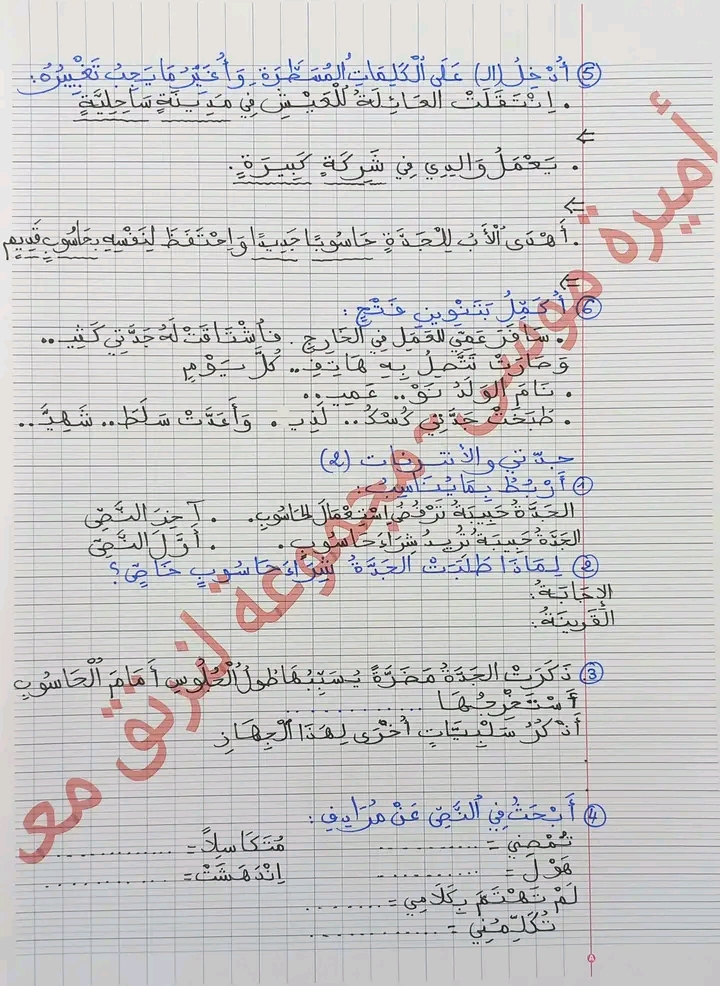 ⑤ أُدْخِلُ (ال) عَلَى الْكَلِمَاتِ الْمُسَطَّرَةِ وَأُغَيِّرُ مَا يَجِبُ تَغْيِيرُهُ:
. اِنْتَقَلَتْ العَائِلَةُ لِلْعَيْشِ فِي مَدِينَةٍ سَاحِلِيَّةٍ
⇐
. يَعْمَلُ وَالِدِي فِي شَرِكَةٍ كَبِيرَةٍ.
⇐
. أَهْدَى الْأَبُ لِلْجَدَّةِ حَاسُوبًا جَدِيدًا وَاحْتَفَظَ لِنَفْسِهِ بِحَاسُوبٍ قَدِيمٍ
⇐
⑥ أُكَمِّلُ بِتَنْوِينِ فَتْحٍ:
. سَافَرَ عَمِّي لِلْعَمَلِ فِي الخَارِجِ. فَاُشْتَاقَتْ لَهُ جَدَّتِي كَثِيـ...
وَصَارَتْ تَتَّصِلُ بِهِ هَاتِفِـ.. كُلَّ يَوْمٍ
. نَامَ الوَلَدُ نَوْ.. عَمِيـ..
. طَبَخَتْ جَدَّتِي كُسْكُـ.. لَذِيـ. وَأَعَدَّتْ سَلَطَـ.. شَهِيَّـ..
جدّتي والأنترنات (2)
① أَرْبُطُ بِمَا يُنَاسِبُ:
الجَدَّةُ حَبِيبَةُ تَرْفُضُ اِسْتِعْمَالَ الحَاسُوبِ. . آخِرَ النَّصِّ
الجَدَّةُ حَبِيبَةُ تُرِيدُ شِرَاءَ حَاسُوبٍ. . أَوَّلَ النَّصِّ
② لِمَاذَا طَلَبَتْ الجَدَّةُ شِرَاءَ حَاسُوبٍ خَاصٍّ؟
الإِجَابَةُ:
القَرِينَةُ:
③ ذَكَرَتْ الجَدَّةُ مَضَرَّةً يُسَبِّبُهَا طُولُ الْجُلُوسِ أَمَامَ الْحَاسُوبِ
أَسْتَخْرِجُهَا ..................
أَذْكُرُ سَلْبِيَّاتٍ أُخْرَى لِهَذَا الْجِهَازِ
④ أَبْحَثُ فِي النَّصِّ عَنْ مُرَادِفِ:
تُمْضِي = .......... مُتَكَاسِلاً = ..............
هَوْلَ = .......... اِنْدَهَشَتْ = ..............
لَمْ تَهْتَمَّ بِكَلَامِي = ........
تُكَلِّمُنِي = ..............
أميرة مؤنس - مجموعة لنرتق معا